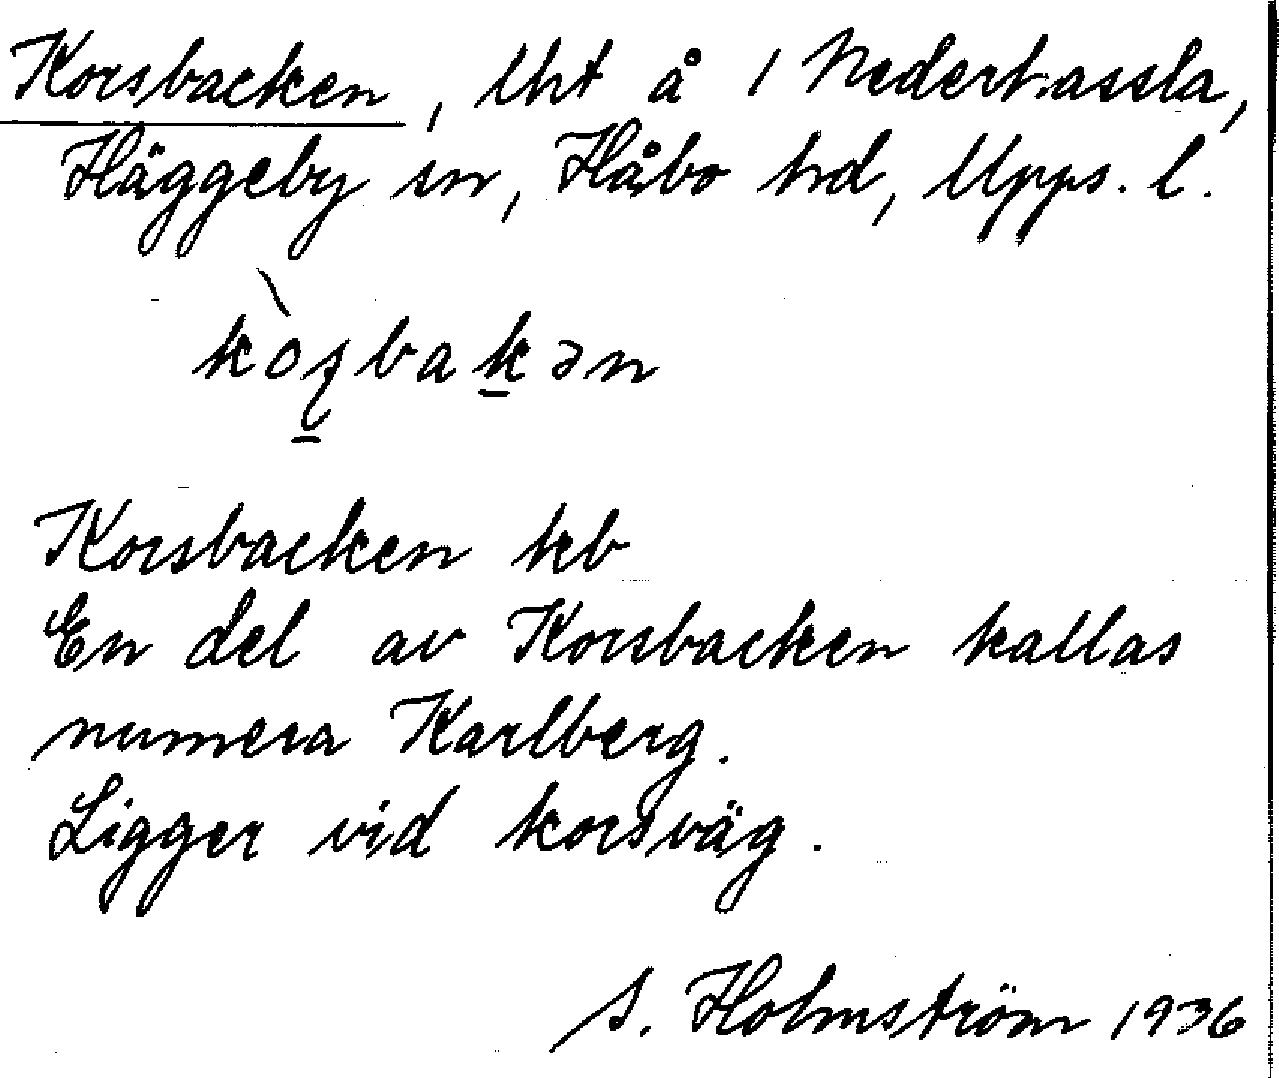 Korsbacken, lht å 1 Nederhassla,
Häggeby sn, Håbo hd, Upps. l.
kòʂbak̠ən
Korsbacken kb
En del av Korsbacken kallas
numera Karlberg.
Ligger vid korsväg.
S. Holmström 1936